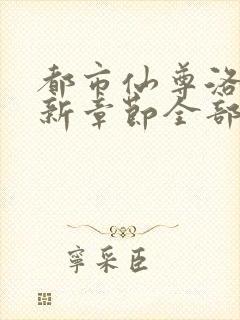 都市仙尊洛
新章節全部
寧采臣